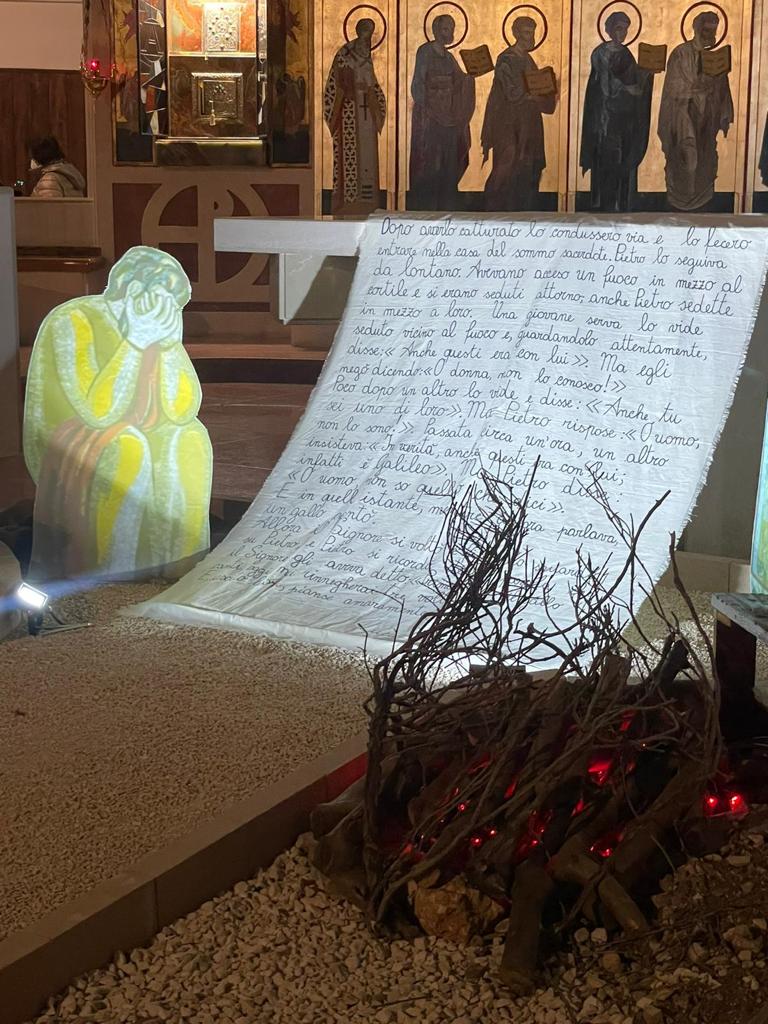 Dopo averlo catturato lo condussero via e lo fecero
entrare nella casa del sommo sacerdote. Pietro lo seguiva
da lontano. Avevano acceso un fuoco in mezzo al
cortile e si erano seduti attorno; anche Pietro sedette
in mezzo a loro. Una giovane serva lo vide
seduto vicino al fuoco e, guardandolo attentamente,
disse: « Anche questi era con lui ». Ma egli
negò dicendo: « O donna, non lo conosco! »
Poco dopo un altro lo vide e disse: « Anche tu
sei uno di loro ». Ma Pietro rispose: « O uomo,
non lo sono! ». Passata circa un'ora, un altro
insisteva: « In verità, anche questi era con lui;
infatti è Galileo ». Ma Pietro disse:
« O uomo, non so quello che dici ».
E in quell'istante, parlava,
un gallo cantò.
Allora il Signore si voltò
su Pietro e Pietro si ricordò
il Signore gli aveva detto:
rinnegherai tre
pianse amaramente